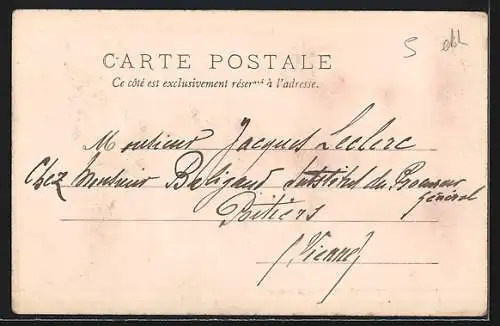 5 obl
CARTE POSTALE
Ce côté est exclusivement réservé à l'adresse.
Monsieur Jacques Leclerc
Chez Monsieur Beligaud Substitut du Procureur
Général
Poitiers
(Vienne)